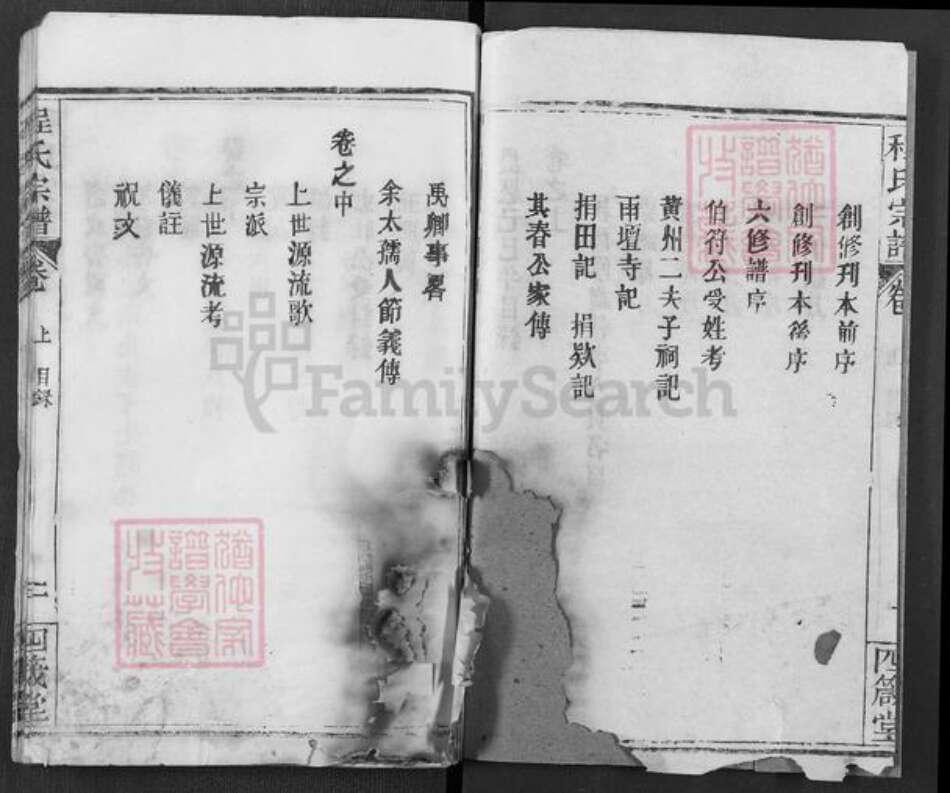 程氏宗譜 卷
四箴堂
創修刊本前序
創修刊本後序
六修譜序
伯符公受姓考
黄州二夫子祠記
雨壇寺記
捐田記 捐欵記
其春公家傳
禹卿事畧
余太孺人節義傳
卷之中
上世源流歌
宗派
上世源流考
儀註
祝文
程氏宗譜 卷上 目録 二 四箴堂
猶他家譜學會收藏
猶他家譜學會收藏
FamilySearch